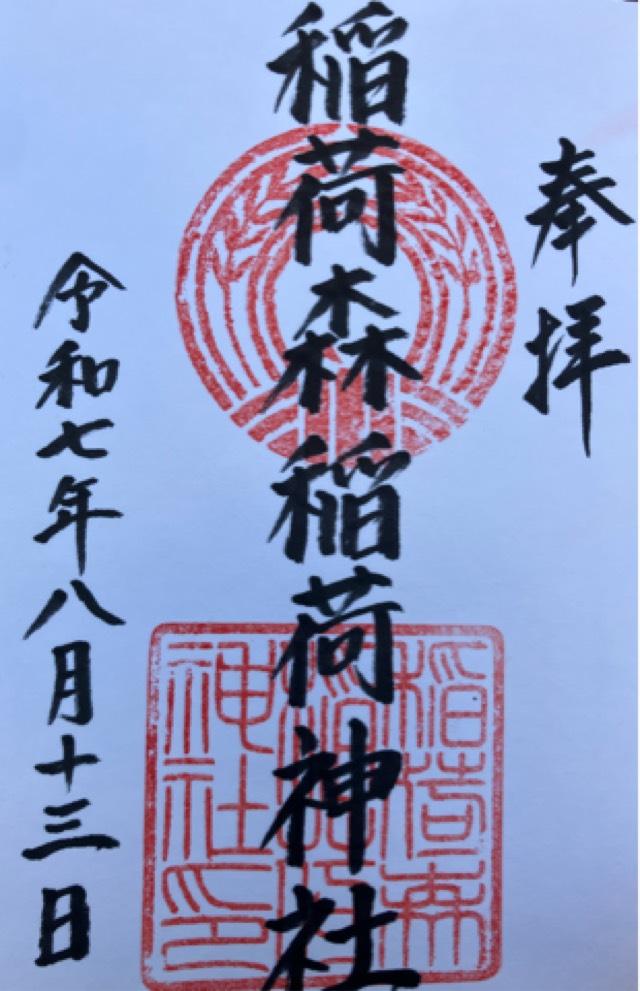 奉拝
稲荷森稲荷神社
令和七年八月十三日
稲荷森
神社印